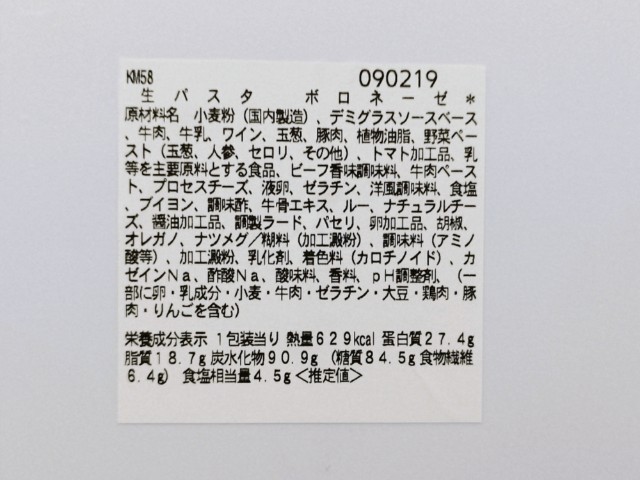 KM58 090219
生パスタ ボロネーゼ*
原材料名 小麦粉(国内製造)、デミグラスソースベース
、牛肉、牛乳、ワイン、玉葱、豚肉、植物油脂、野菜ペー
スト(玉葱、人参、セロリ、その他)、トマト加工品、乳
等を主要原料とする食品、ビーフ香味調味料、牛肉ペース
ト、プロセスチーズ、液卵、ゼラチン、洋風調味料、食塩
、ブイヨン、調味酢、牛骨エキス、ルー、ナチュラルチー
ズ、醤油加工品、調製ラード、パセリ、卵加工品、胡椒、
オレガノ、ナツメグ/糊料(加工澱粉)、調味料(アミノ
酸等)、加工澱粉、乳化剤、着色料(カロチノイド)、カ
ゼインNa、酢酸Na、酸味料、香料、pH調整剤、(一
部に卵・乳成分・小麦・牛肉・ゼラチン・大豆・鶏肉・豚
肉・りんごを含む)
栄養成分表示 1包装当り 熱量629kcal 蛋白質27.4g
脂質18.7g 炭水化物90.9g (糖質84.5g 食物繊維
6.4g) 食塩相当量4.5g<推定値>